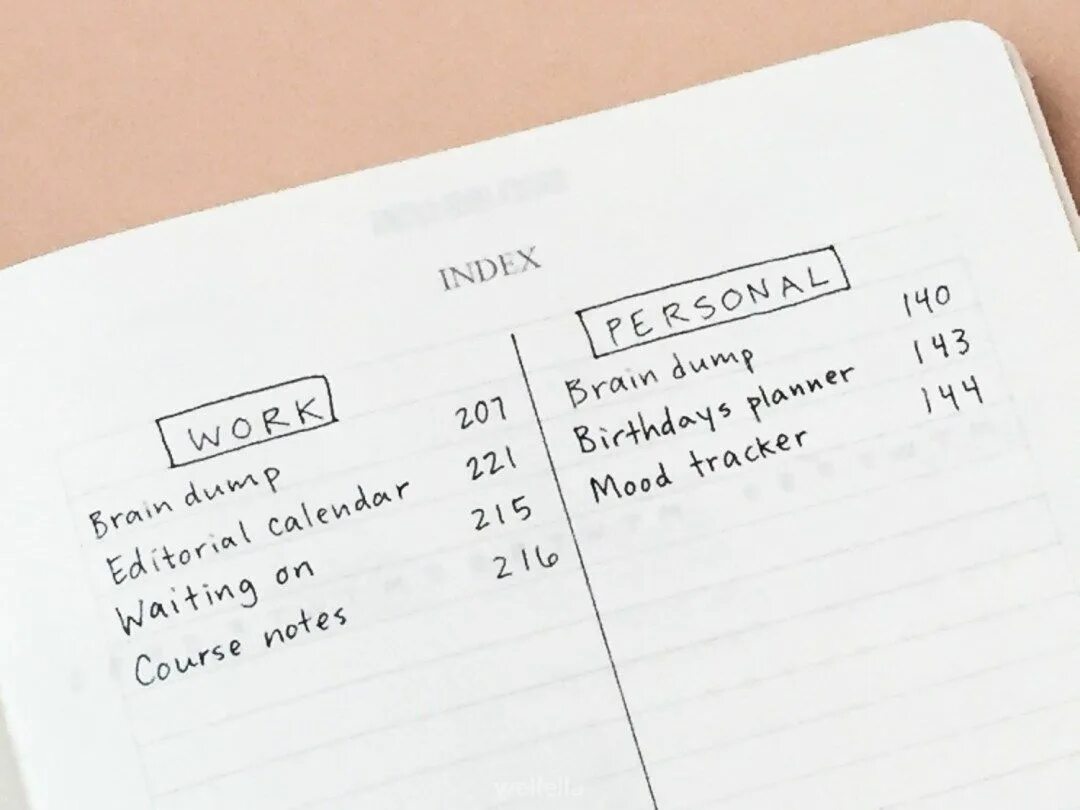 INDEX
WORK
Brain dump 207
Editorial calendar 221
Waiting on 215
Course notes 216
PERSONAL
Brain dump 140
Birthdays planner 143
Mood tracker 144